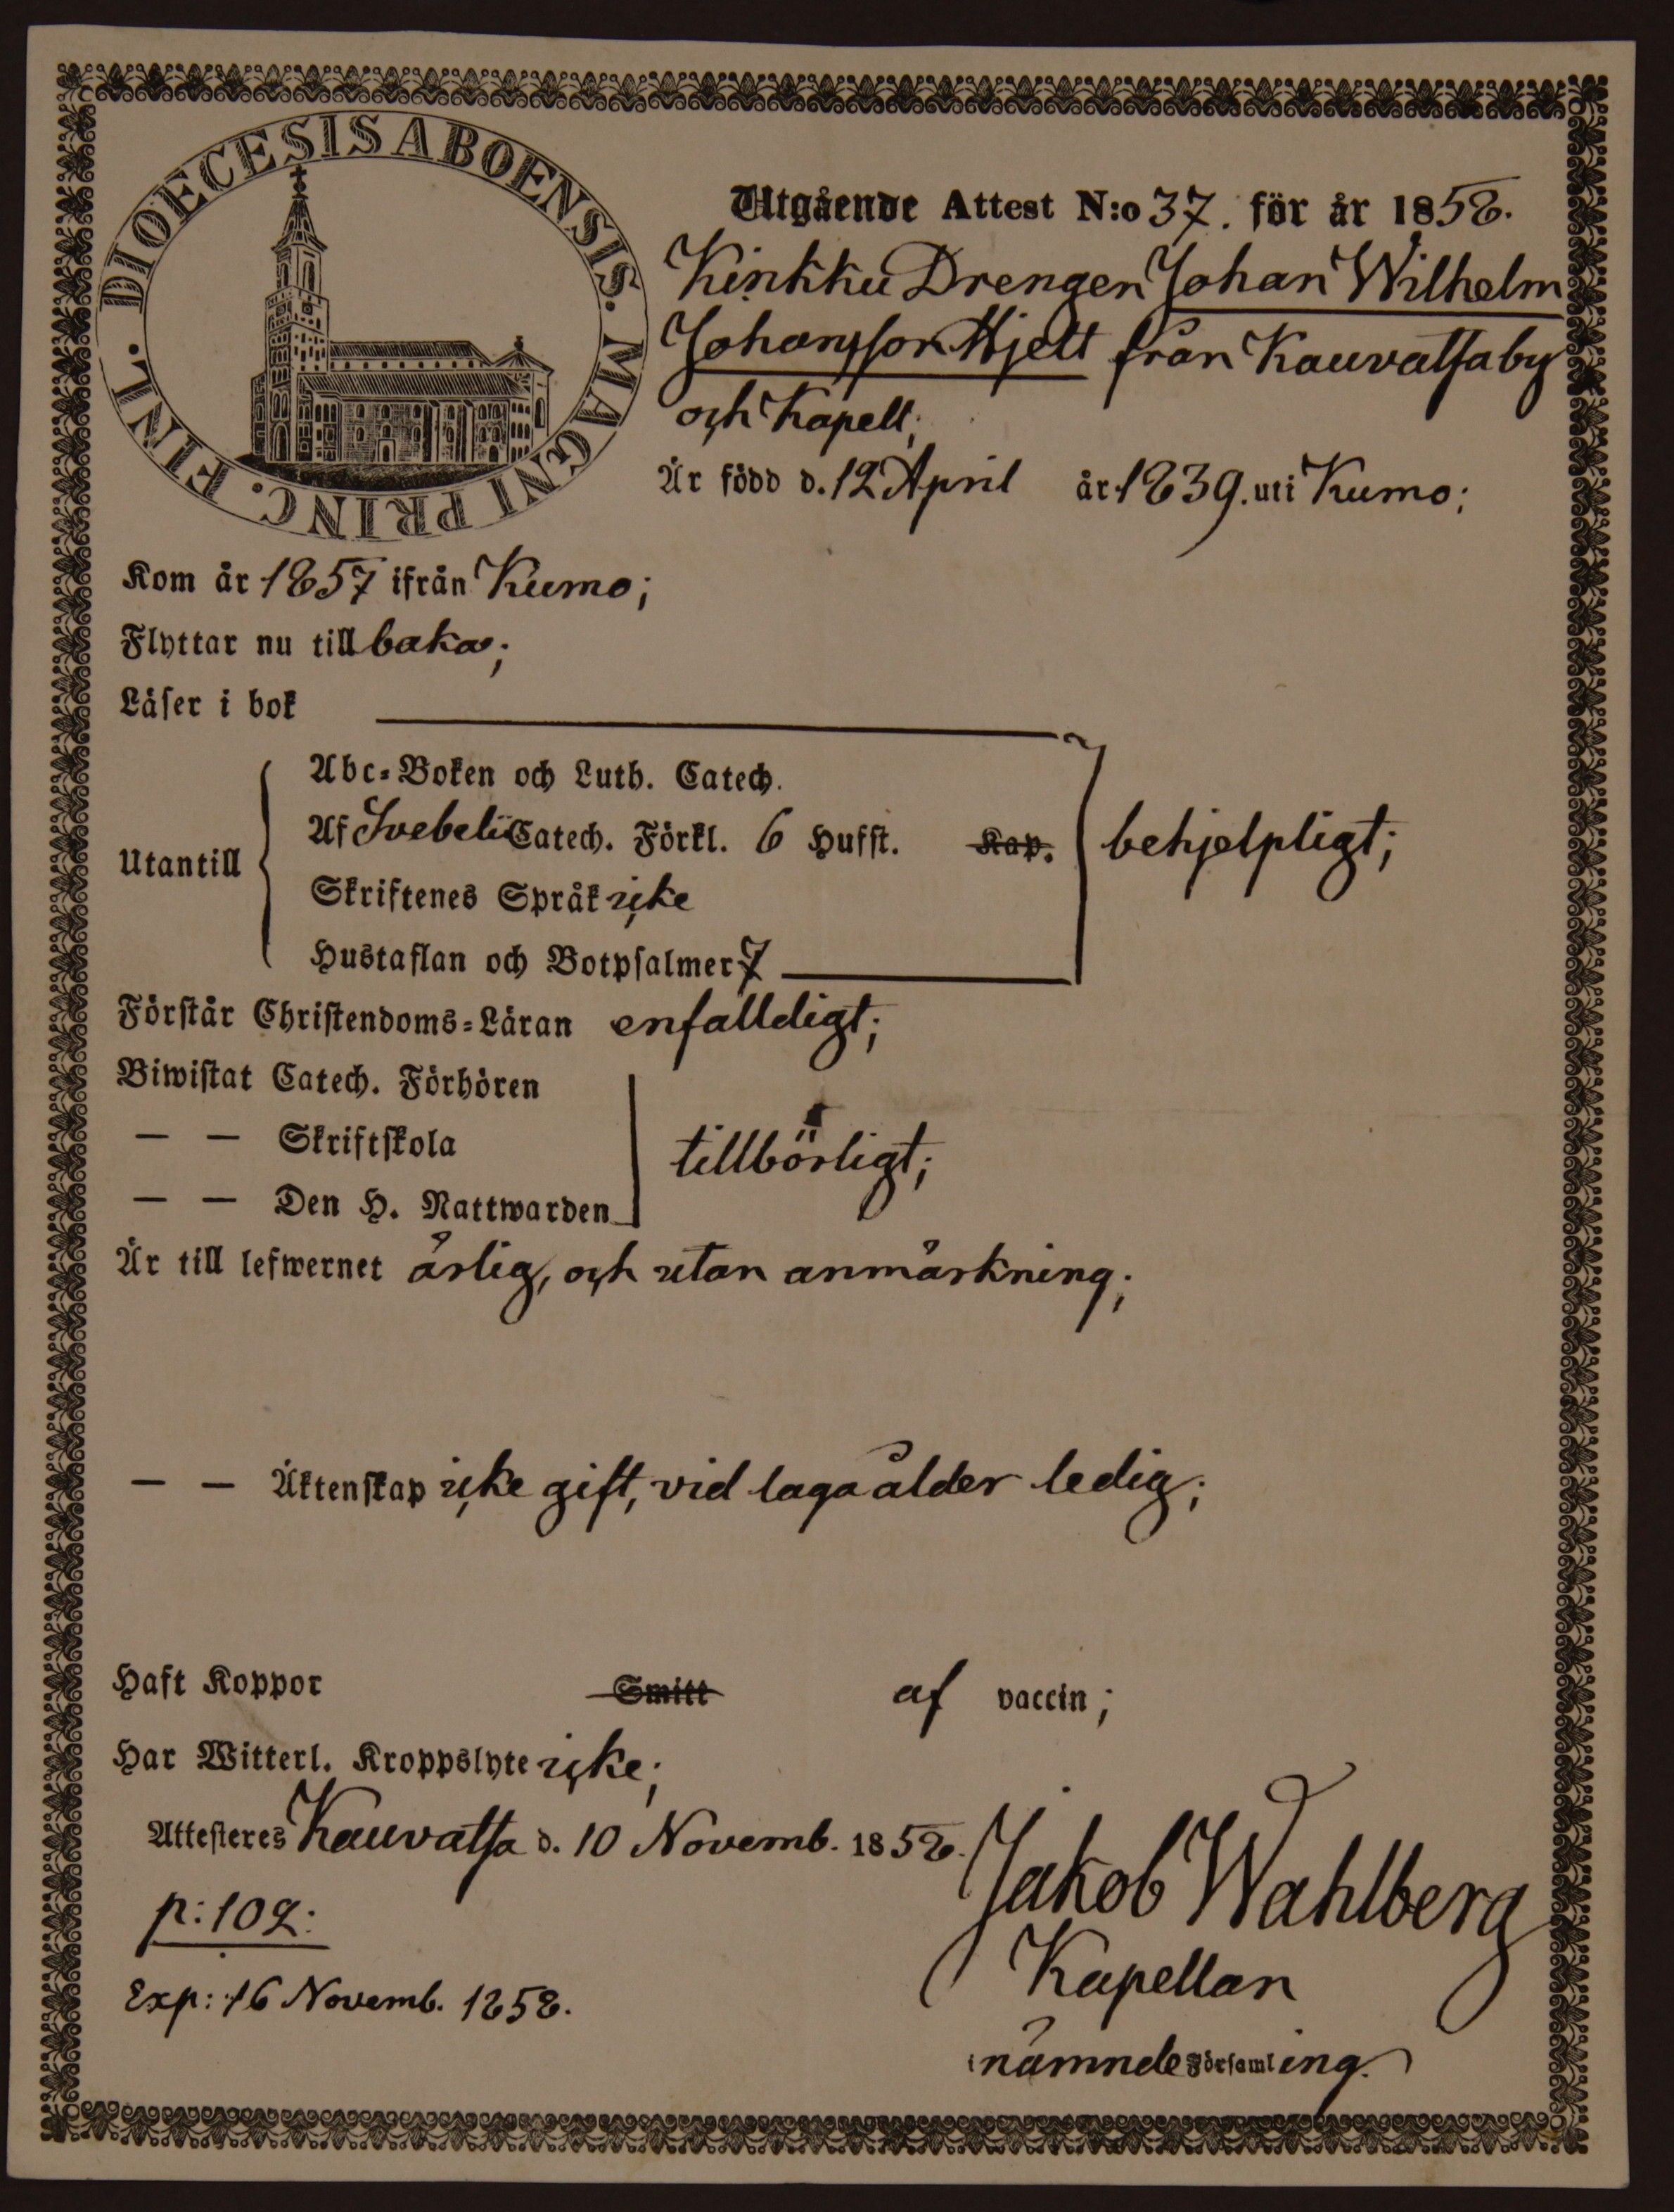 DIOECESIS ABOENSIS. MAGNI PRINC. FINL.
Utgående Attest N:o 37. för år 1858.
Kinkku Drengen Johan Wilhelm
Johansson Hjelt från Kauvatsa by
och Kapell;
Är född d. 12 April år 1839. uti Kumo;
Kom år 1857 ifrån Kumo;
Flyttar nu till baka;
Läser i bok
Abc-Boken och Luth. Catech.
Utantill
Af Svebelii Catech. Förkl. 6 Hufst. Kap. behjelpligt;
Skriftenes Språk icke
Hustaflan och Botpsalmer 7
Förstår Christendoms-Läran enfalldigt;
Biwistat Catech. Förhören
— — Skriftskola tillbörligt;
— — Den H. Nattwarden
Är till lefwernet ärlig, och utan anmärkning;
— — Äktenskap icke gift, vid laga ålder ledig;
Haft Koppor Smitt af vaccin;
Har Witterl. Kroppslyte icke;
Attesteres Kauvatsa d. 10 Novemb. 1858.
Jakob Wahlberg
p: 102:
Kapellan
Exp: 16 Novemb. 1858.
i nämnde Församling.